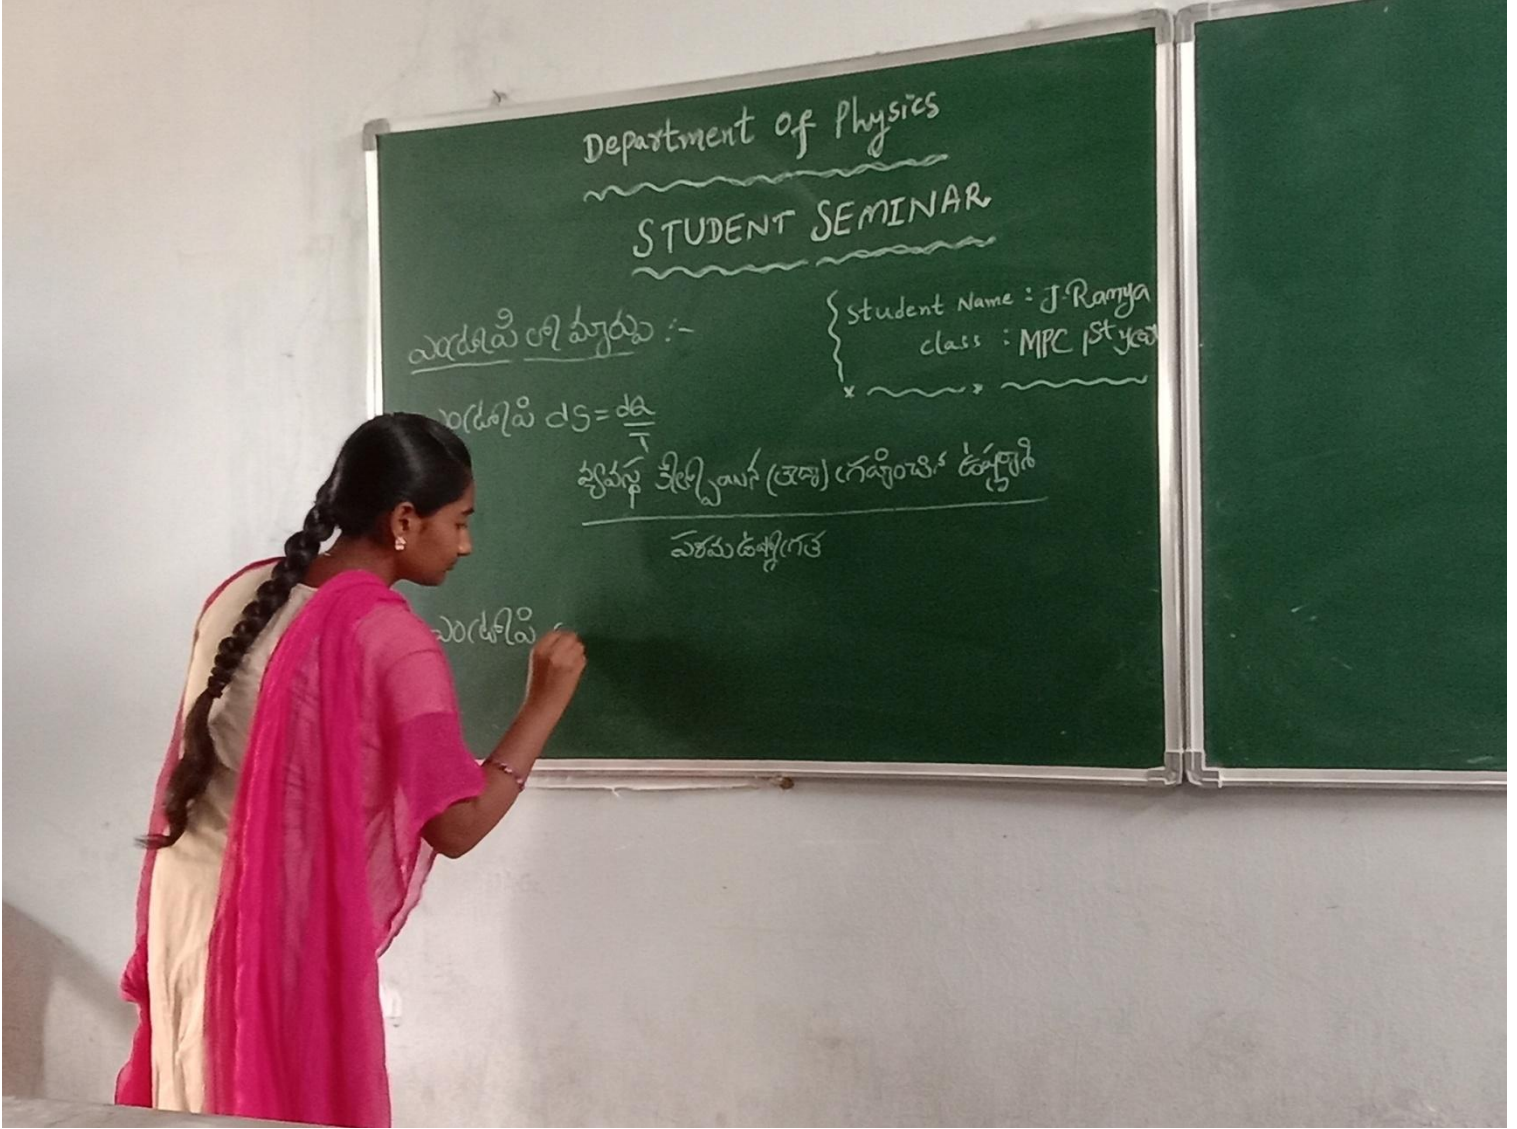 Department of Physics
STUDENT SEMINAR
Student Name : J. Ramya
class : MPC 1st year
ఎంట్రోపి లో మార్పు :-
ఎంట్రోపి dS = dQ/T
వ్యవస్థ కోల్పోయిన (లేదా) గ్రహించిన ఉష్ణరాశి
పరమ ఉష్ణోగ్రత
ఎంట్రోపి